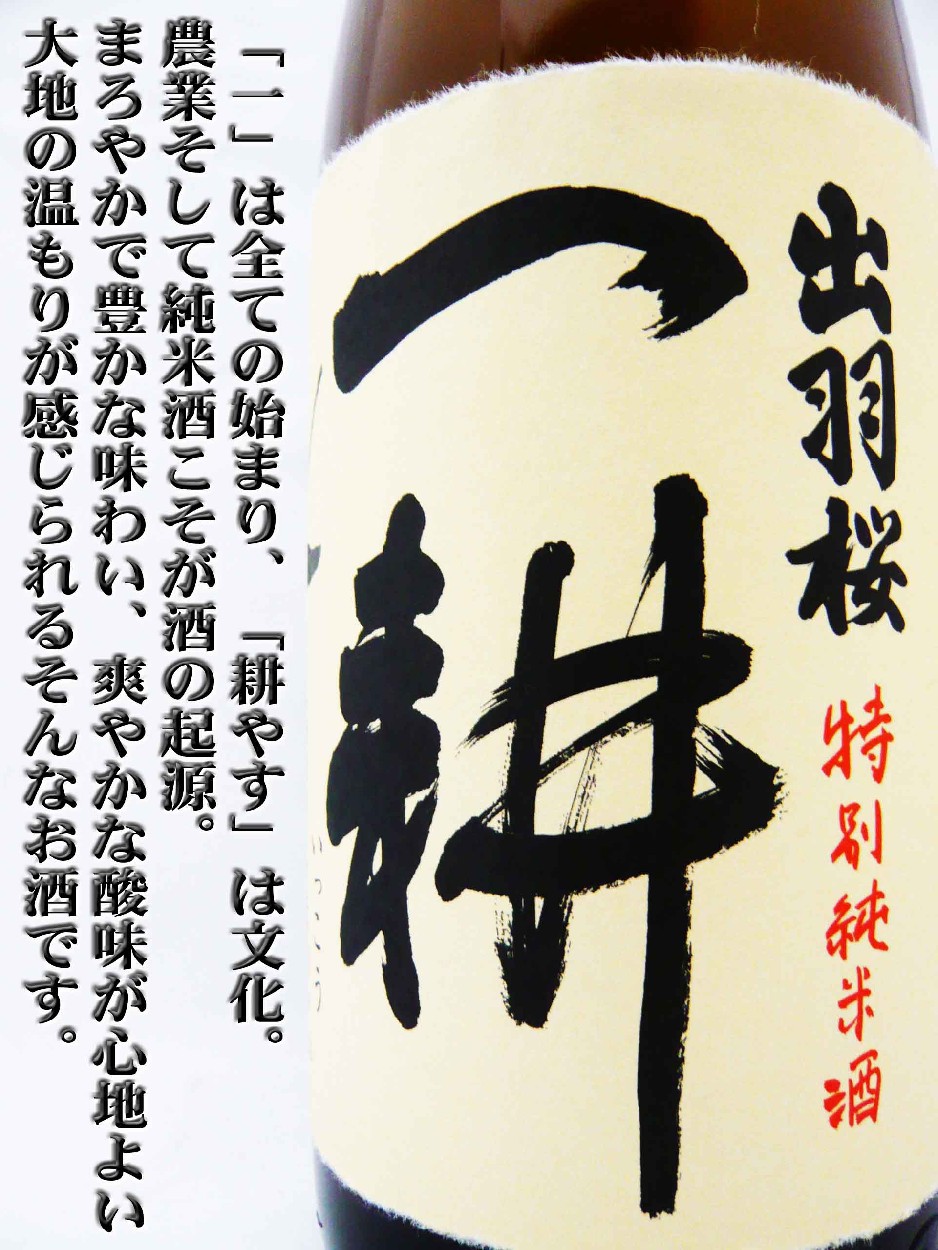 出羽桜
特別純米酒
一耕
いっこう
「一」は全ての始まり、「耕やす」は文化。
農業そして純米酒こそが酒の起源。
まろやかで豊かな味わい、爽やかな酸味が心地よい
大地の温もりが感じられるそんなお酒です。